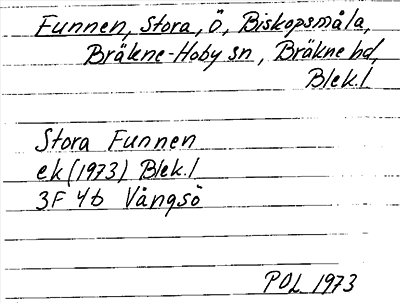 Funnen, Stora, Ö, Biskopsmåla,
Bräkne-Hoby sn, Bräkne hd,
Blek. l
Stora Funnen
ek (1973) Blek. l
3F 4b Vångsö
POL 1973